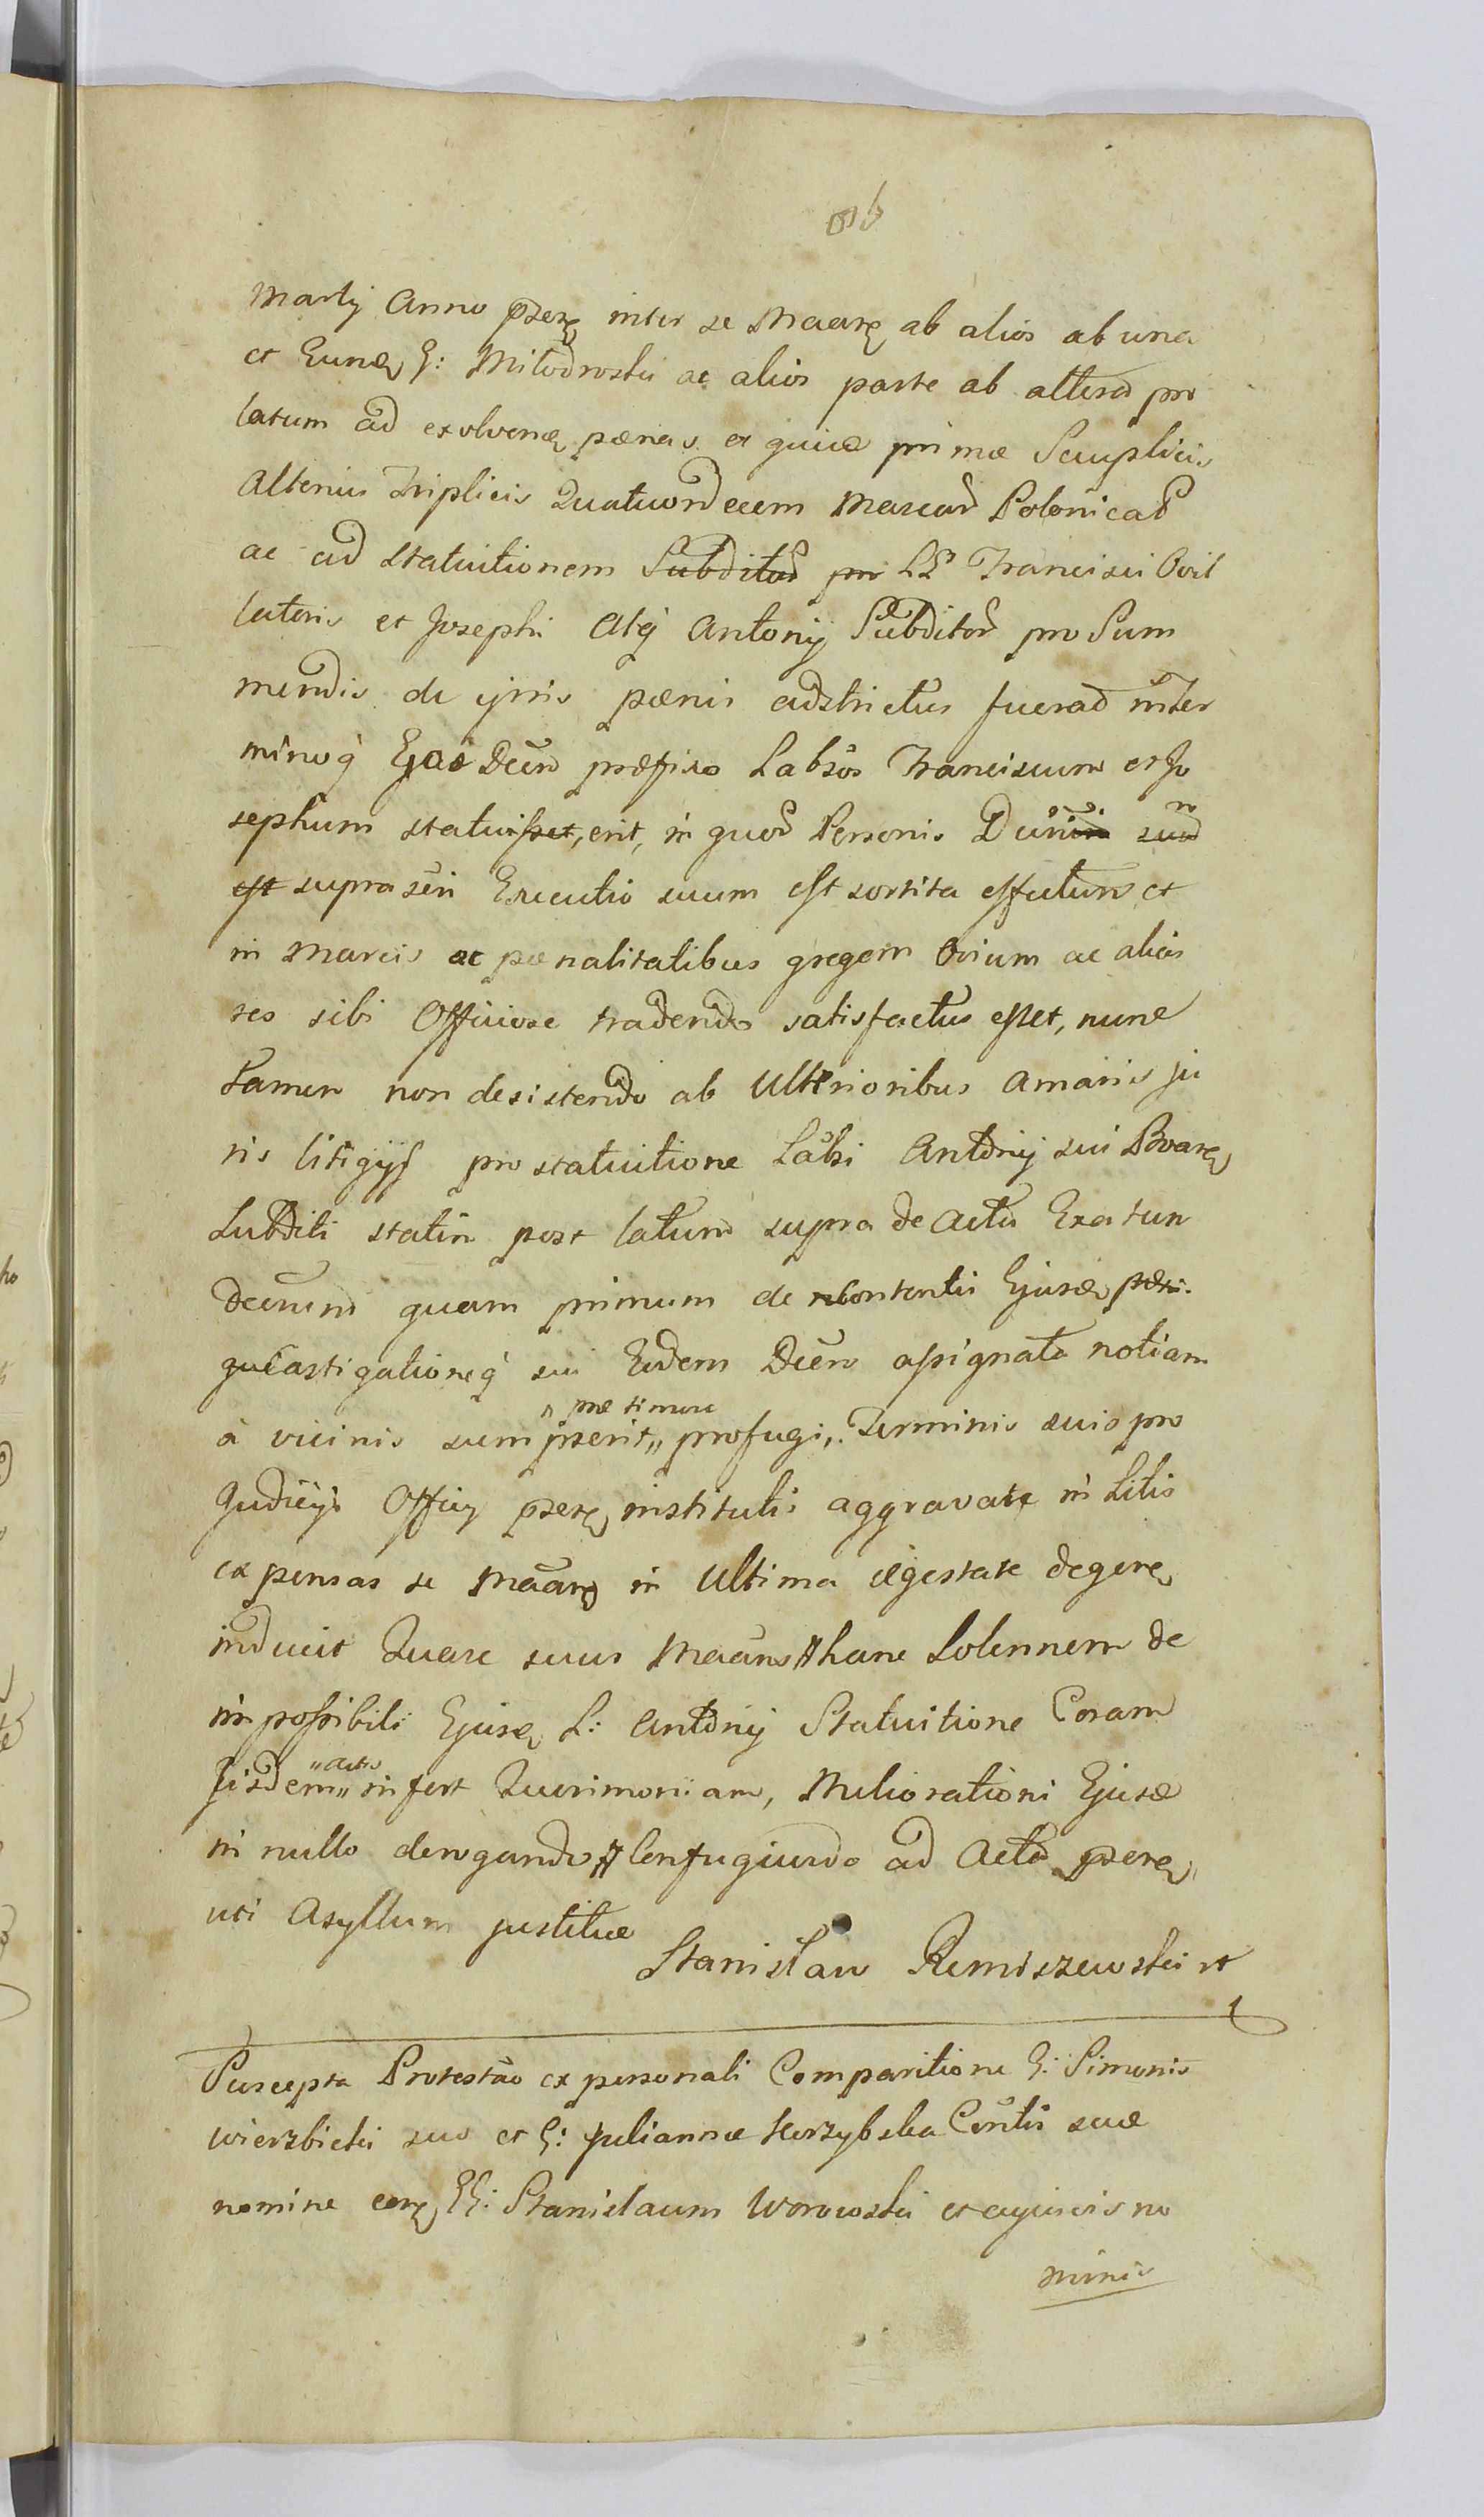 Martij Anno pserę inter se Maarę ab alios ab una
et Eundę G: Milodroski ac alios parte ab altera pro
latum ad exolvendę pænas et quidę primæ Scuplicis
Alterius Triplicis Quatuordecem Marcas Polonicas
ac ad statuitionem Subditos pro LL Francisci Ovil
latoris et Josephi Atq Antonij Subditor pro Sum
mendis de ijsis pænis adstrictus fuerad inter
minoq Eodẽ Dẽco præfixo Labsos Franciscum et Jo
sephum statuisset, erit, in quod Personis
est supra sẽn Executio suum est sortita effectum et
in Marcis ac pœnalitatibus gregem Ovium ac alias
res sibi Officiose tradendo satisfactus esset, nunc
Tamen non desistendo ab Ulterioribus amariis ju
ris litigijs pro statuitione Labsi Antonij sui
Subditi statim post latum supra de Actu Exatun
decrum quam primum de contentis Ejusdę
Castigationeq sui Eodem Dẽco assignata notiam
præ timore
à vicinis sumpserit,, profugi, Terminis suis pro
Judicijs Officij pserę institutis aggravate in Litis
expensas se Maarę in Ultima ægestate degerę
inducit Quare suus Maans hanc Solennem de
impossibili Ejusdę L: Antonij Statuitione Coram
actis
Jisdem,, infert Querimoniam, Meliorationi Ejusdę
in nullo derogando Confugiendo ad Acta pserę
uti Asyllum justitiæ
Stanislaw Remiszewski
Suscepta Protestão ex personali Comparitione G: Simonis
Wierzbicki suo et G: Juliannæ Korzybska Conlis suæ
nomine eorę GG: Stanislaum Worowski et cujusvis no
minis